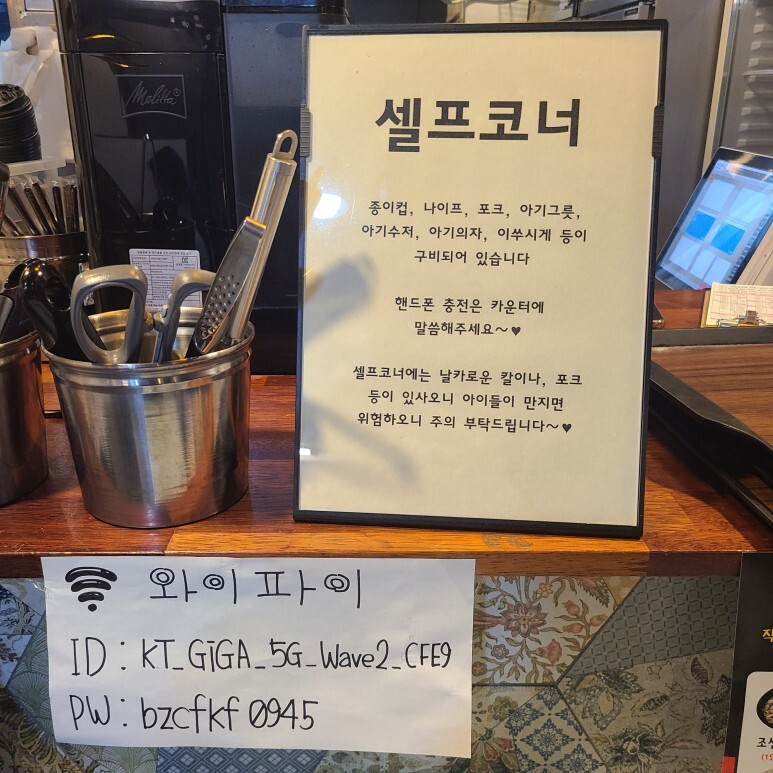 Melitta
셀프코너
종이컵, 나이프, 포크, 아기그릇,
아기수저, 아기의자, 이쑤시게 등이
구비되어 있습니다
핸드폰 충전은 카운터에
말씀해주세요~♥
셀프코너에는 날카로운 칼이나, 포크
등이 있사오니 아이들이 만지면
위험하오니 주의 부탁드립니다~♥
와이파이
ID : KT_GiGA_5G_Wave2_CFE9
PW : bzcfkf0945